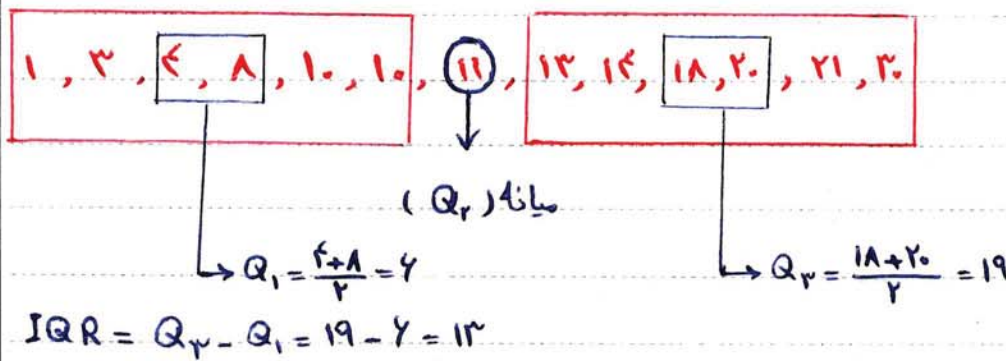 ۱ , ۳ , ۴ , ۸ , ۱۰ , ۱۰ , ۱۱ , ۱۳ , ۱۴ , ۱۸ , ۲۰ , ۲۱ , ۳۰
میانه (Q۲)
Q۱ = (۴+۸)/۲ = ۶
Q۳ = (۱۸+۲۰)/۲ = ۱۹
IQR = Q۳ - Q۱ = ۱۹ - ۶ = ۱۳